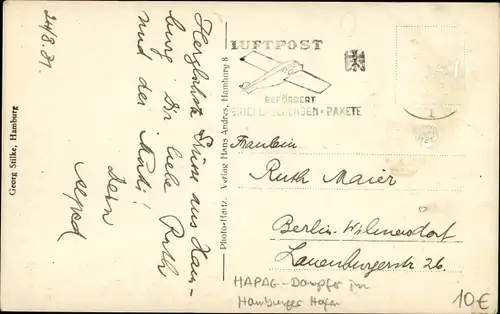 24/8.31.
Herzlichste Grüsse aus Ham-
burg Dir liebe Ruth
und der Mutti!
Dein
Alfred
Georg Stilke, Hamburg
Photo-Hartz. Verlag Hans Andres, Hamburg 8
LUFTPOST
BEFÖRDERT
BRIEFE ZEITUNGEN PAKETE
Fräulein
Ruth Maier
Berlin-Wilmersdorf
Lauenburgerstr 26.
HAPAG-Dampfer im
Hamburger Hafen
10€